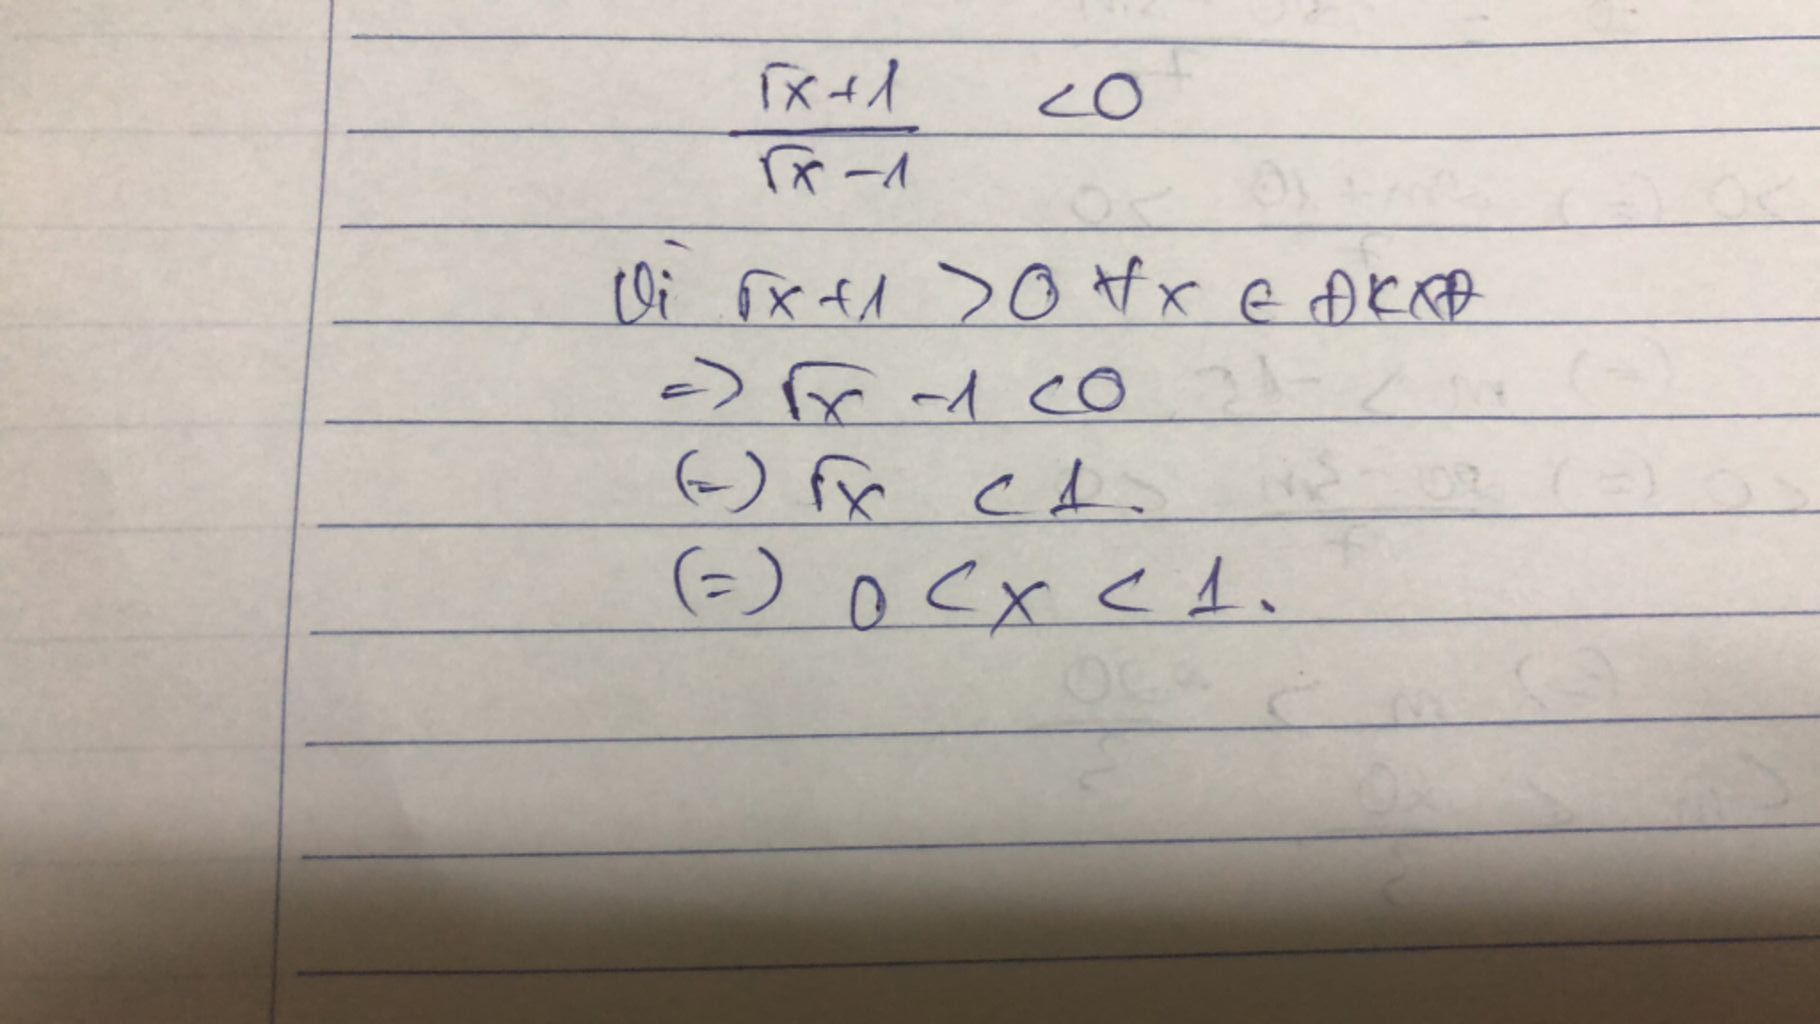 √x+1 / √x-1 <0
Vì √x+1 >0 ∀x ∈ ĐKXĐ
=> √x -1 <0
(=) √x < 1.
(=) 0 < x < 1.